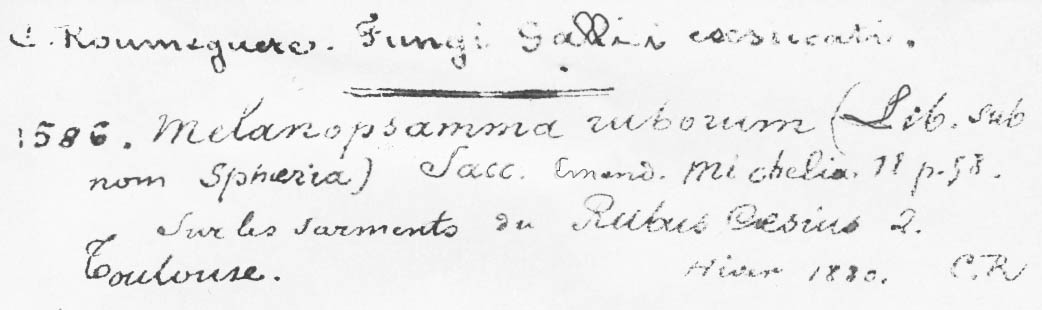 C. Roumeguere. Fungi Gallici exsiccati.
1586. Melanopsamma ruborum (Lib. sub
nom Spheria) Sacc. Emend. Michelia. 11 p.
Sur les sarments du Rubus Cæsius
Toulouse. Hiver 1880. C.R